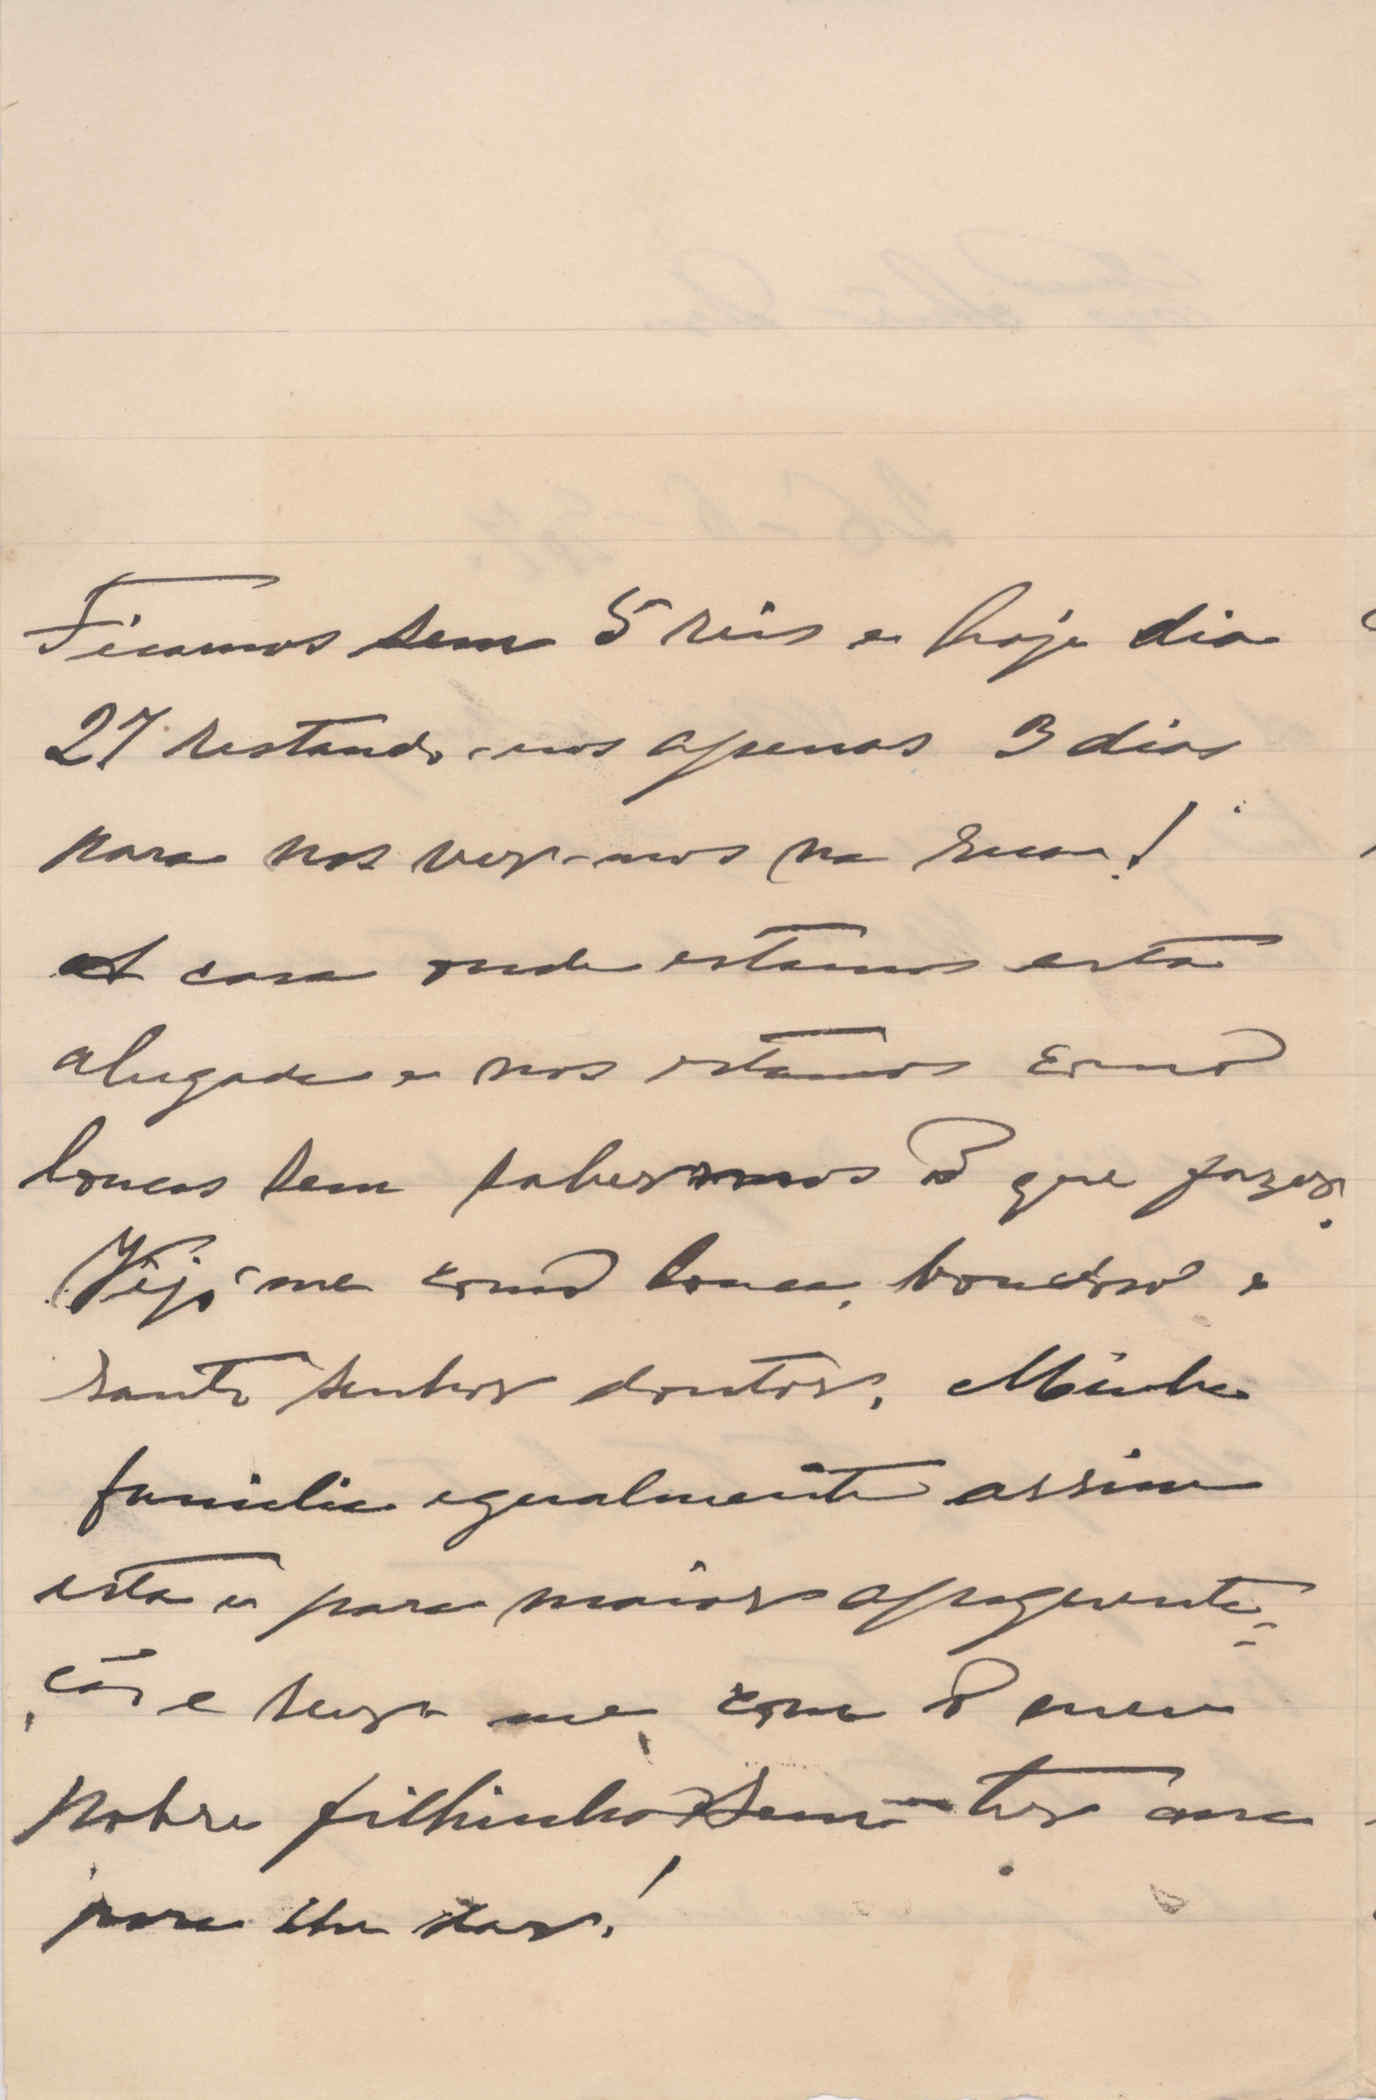 Ficamos sem 5 reis e hoje dia
27 restando-nos apenas 3 dias
para nos ver-mos na rua!
A casa onde estamos está
alugada e nos estamos como
loucos sem sabermos o que fazer.
Vejo-me como louca, bondoso e
santo senhor doutor. Minha
familia egualmente assim
esta e para maior apoquenta-
ção e ver-me com o meu
pobre filhinho sem ter casa
para lhe dar!